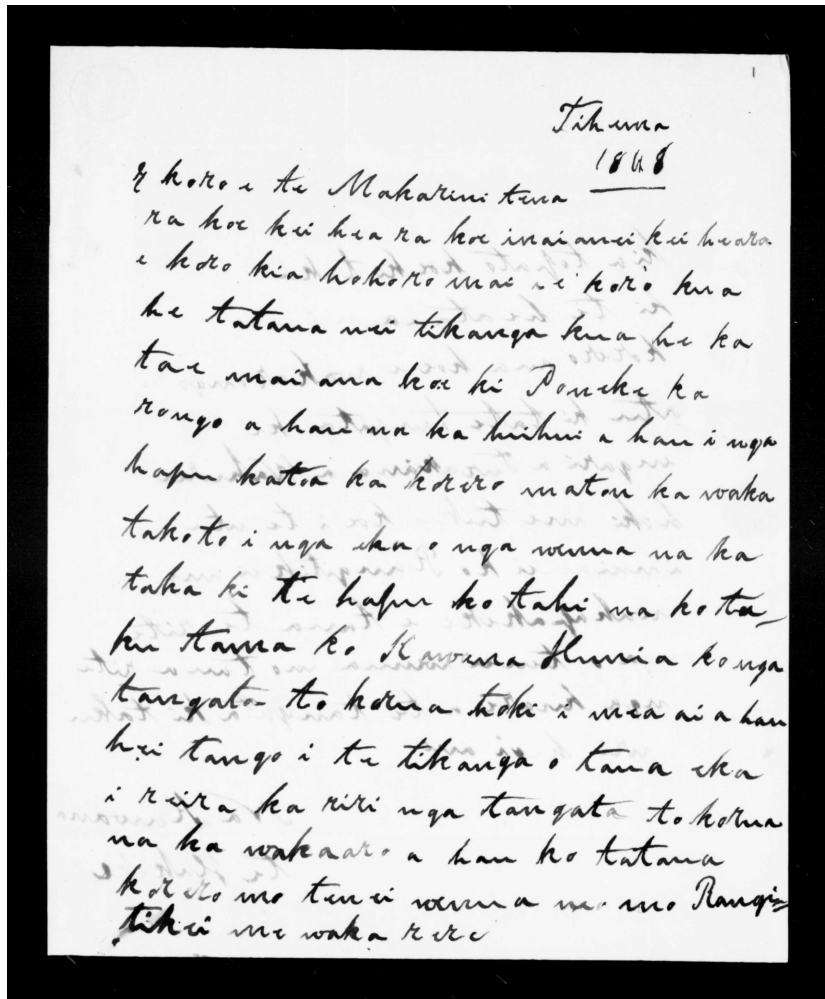 Tihema
1848
E koro e te Makarini tena
ra koe kei hea ra koe inaianei kei heara
e koro kia hohoro mai e koro kua
he tatana nei tikanga kua he ka
tae maitana koe ki Poneke ka
rongo a hau na ka huihui a hau i nga
hapu katoa ka korero matou ka waka
takoto i nga eka o nga wenua na ka
taka ki te hapu ko tahi na ko ta-
ku tama ko Kawena Hunia ko nga
tangata to korua hoki i mea ai a hau
hei tango i te tikanga o tana eka
i reira ka riri nga tangata tokorua
na ka wakaaro a hau ko tatana
korero mo tenei wenua mo Rangi=
tikei me waka rere